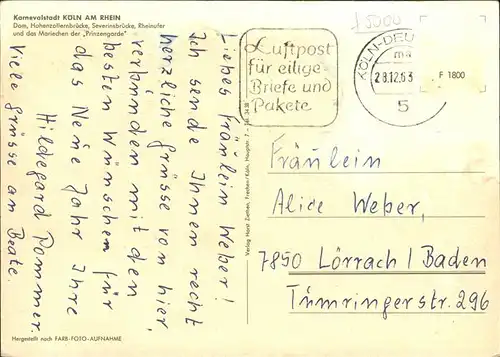 Karnevalstadt KÖLN AM RHEIN
Dom, Hohenzollernbrücke, Severinsbrücke, Rheinufer
und das Mariechen der „Prinzengarde"
Liebes Fräulein Weber!
Ich sende Ihnen recht
herzliche Grüsse von hier,
verbunden mit den
besten Wünschen für
das Neue Jahr Ihre
Hildegard Pommer.
Viele Grüsse an Beate.
Hergestellt nach FARB-FOTO-AUFNAHME
Verlag Horst Ziethen, Frechen/Köln, Hauptstr.
Luftpost
für eilige
Briefe und
Pakete
KÖLN-DEU
ma
28.12.63
5
F 1800
Fräulein
Alice Weber,
7850 Lörrach / Baden
Tumringerstr. 296